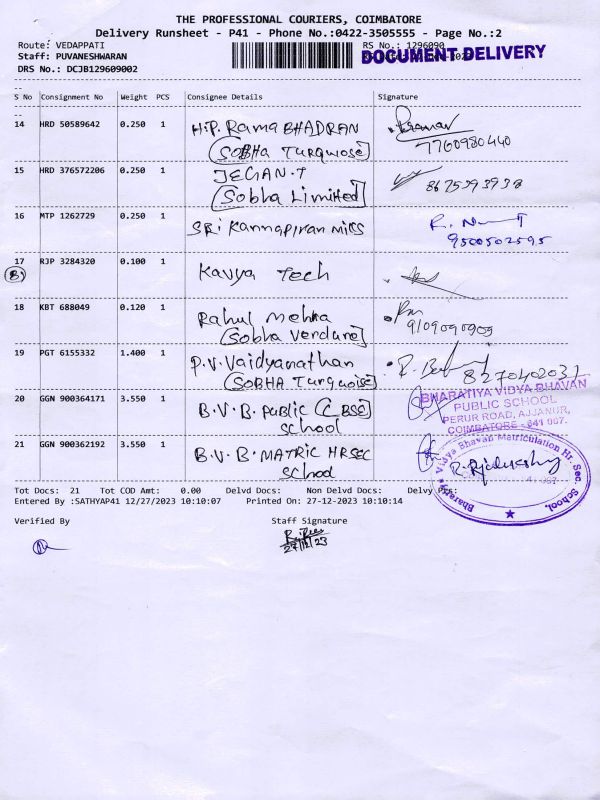 THE PROFESSIONAL COURIERS, COIMBATORE
Delivery Runsheet - P41 - Phone No.:0422-3505555 - Page No.:2
Route: VEDAPPATI
RS No.: 1296090
Staff: PUVANESHWARAN
DOCUMENT DELIVERY
DRS No.: DCJB129609002
--
S No Consignment No Weight PCS Consignee Details Signature
--
14 HRD 50589642 0.250 1 H.P. Rama BHADRAN
(SOBHA Turquose] 7760980440
15 HRD 376572206 0.250 1 JEGAN.T
(Sobha Limited] 8675393938
16 MTP 1262729 0.250 1 SRi Kannapiran mills
9500502595
17 RJP 3284320 0.100 1 Kavya Tech
18 KBT 688049 0.120 1 Rahul mehra
(Sobha Verdure] 9109090909
19 PGT 6155332 1.400 1 P.V. Vaidyanathan
(SOBHA Turquoise] 8270402031
20 GGN 900364171 3.550 1 B.V.B. Public (CBSE]
school
BHARATIYA VIDYA BHAVAN
PUBLIC SCHOOL
PERUR ROAD, AJJANUR,
COIMBATORE - 641 007.
21 GGN 900362192 3.550 1 B.V.B. MATRIC HRSEC
school
Bharatiya Vidya Bhavan Matriculation Hr. Sec. School,
Tot Docs: 21 Tot COD Amt: 0.00 Delvd Docs: Non Delvd Docs:
Entered By :SATHYAP41 12/27/2023 10:10:07 Printed On: 27-12-2023 10:10:14
Verified By Staff Signature
27/12/23